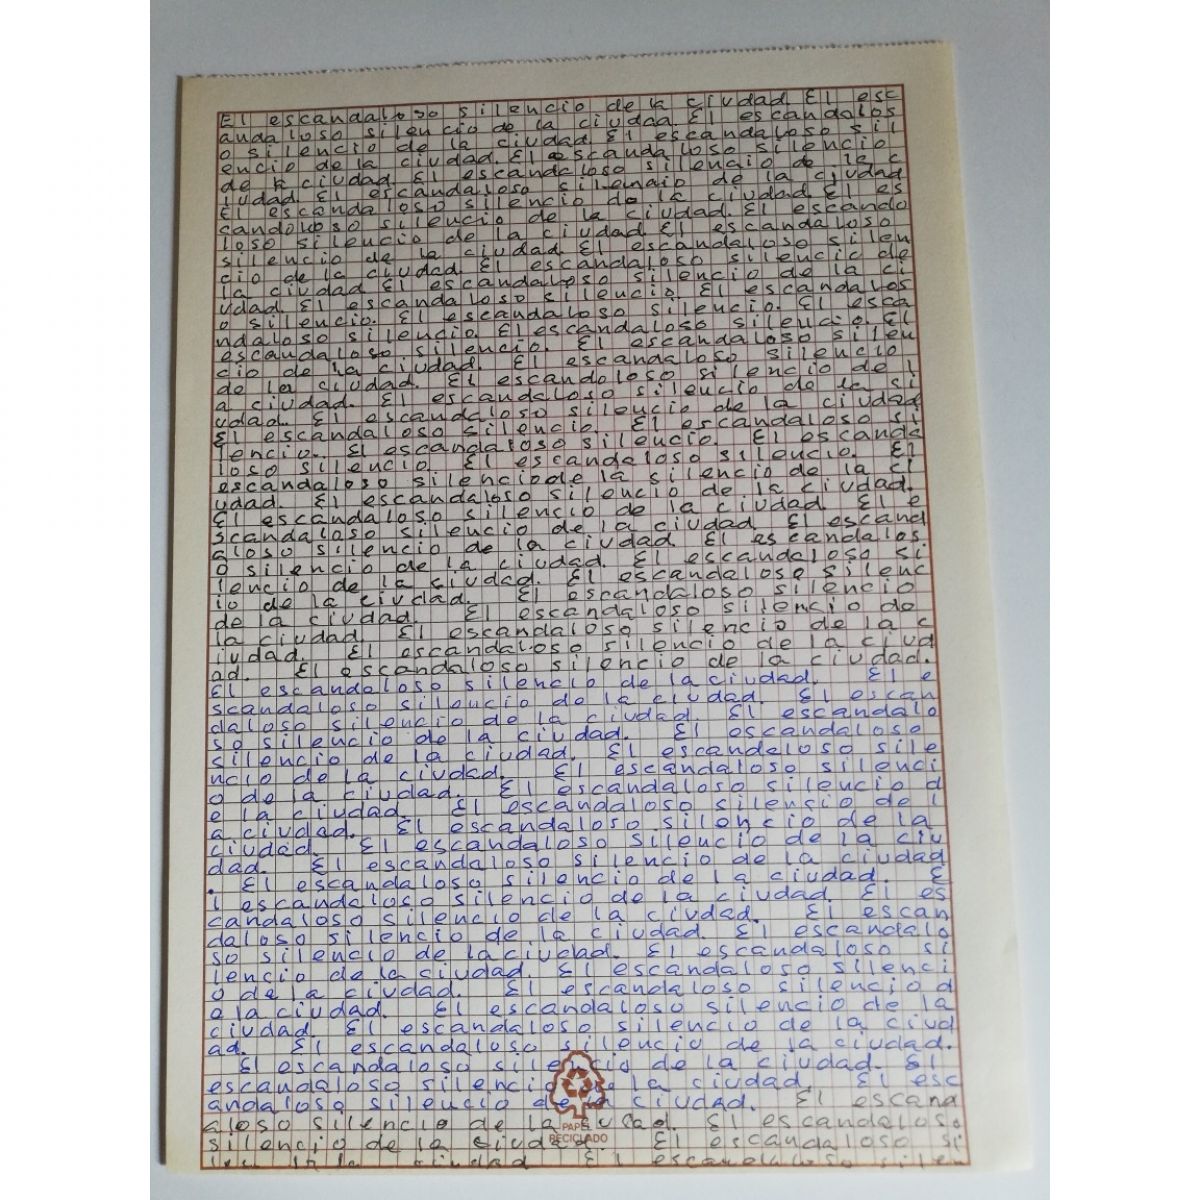 El escandaloso silencio de la ciudad El esc
andaloso silencio de la ciudad El escandalos
o silencio de la ciudad. El escandaloso sil
encio de la ciudad. El escandaloso silencio
de la ciudad El escandaloso silencio de la c
iudad El escandaloso silencio de la ciudad
El escandaloso silencio de la ciudad El es
candaloso silencio de la ciudad. El escanda
loso silencio de la ciudad El escandaloso
silencio de la ciudad El escandaloso silen
cio de la ciudad. El escandaloso silencio de
la ciudad El escandaloso silencio de la ci
udad. El escandaloso silencio. El escandalos
o silencio. El escandaloso silencio. El esca
ndaloso silencio. El escandaloso silencio. El
escandaloso silencio. El escandaloso silen
cio de la ciudad. El escandaloso silencio
de la ciudad. El escandoloso silencio de l
a ciudad. El escandaloso silencio de la si
udad. El escandaloso silencio de la ciudad
El escandaloso silencio. El escandaloso si
lencio. El escandaloso silencio. El escanda
loso silencio. El escandaloso silencio. El
escandaloso silencio de la silencio de la ci
udad. El escandaloso silencio de la ciudad.
El escandaloso silencio de la ciudad. El e
scandaloso silencio de la ciudad El escand
aloso silencio de la ciudad. El escandalos
o silencio de la ciudad. El escandaloso si
lencio de la siudad. El escandaloso silenc
io de la ciudad. El escandaloso silencio
de la ciudad. El escandaloso silencio de
la ciudad. El escandaloso silencio de la c
iudad. El escandaloso silencio de la ciud
ad. El escandaloso silencio de la ciudad.
El escandaloso silencio de la ciudad. El e
scandaloso silencio de la ciudad. El escan
daloso silencio de la ciudad. El escandalo
so silencio de la ciudad. El escandaloso
silencio de la ciudad. El escandaloso sile
ncio de la ciudad. El escandaloso silenci
o de la ciudad. El escandaloso silencio d
e la ciudad. El escandaloso silencio de l
a ciudad. El escandaloso silencio de la
ciudad. El escandaloso silencio de la ciu
dad. El escandaloso silencio de la ciudad
. El escandaloso silencio de la ciudad. E
l escandaloso silencio de la ciudad. El es
candaloso silencio de la ciudad. El escan
daloso silencio de la ciudad. El escandalo
so silencio de la ciudad. El escandaloso si
lencio de la ciudad. El escandaloso silenci
o de la ciudad. El escandaloso silencio d
a la ciudad. El escandaloso silencio de la
ciudad. El escandaloso silencio de la ciud
ad. El escandaloso silencio de la ciudad.
El escandaloso silencio de la ciudad. El
escandaloso silencio de la ciudad. El esc
andaloso silencio de la ciudad. El escand
aloso silencio de la ciudad. El escandaloso
silencio de la ciudad. El escandaloso si
la ciudad El escandaloso silen
PAPEL
RECICLADO